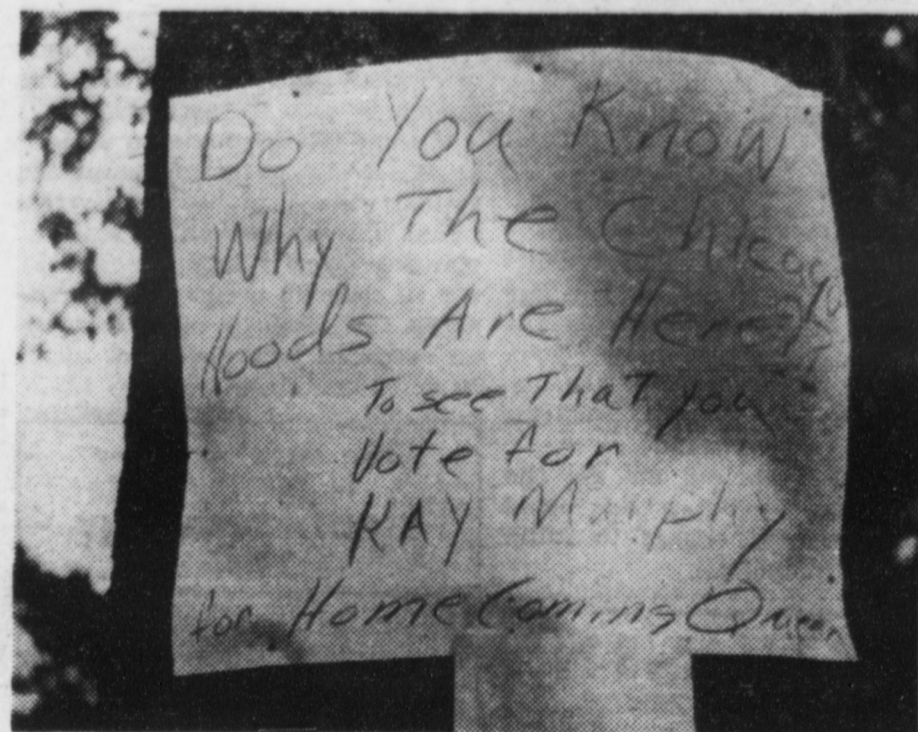 Do You Know
Why The Chicago
Hoods Are Here?
To see That you
Vote for
KAY Murphy
for HomeComing Queen